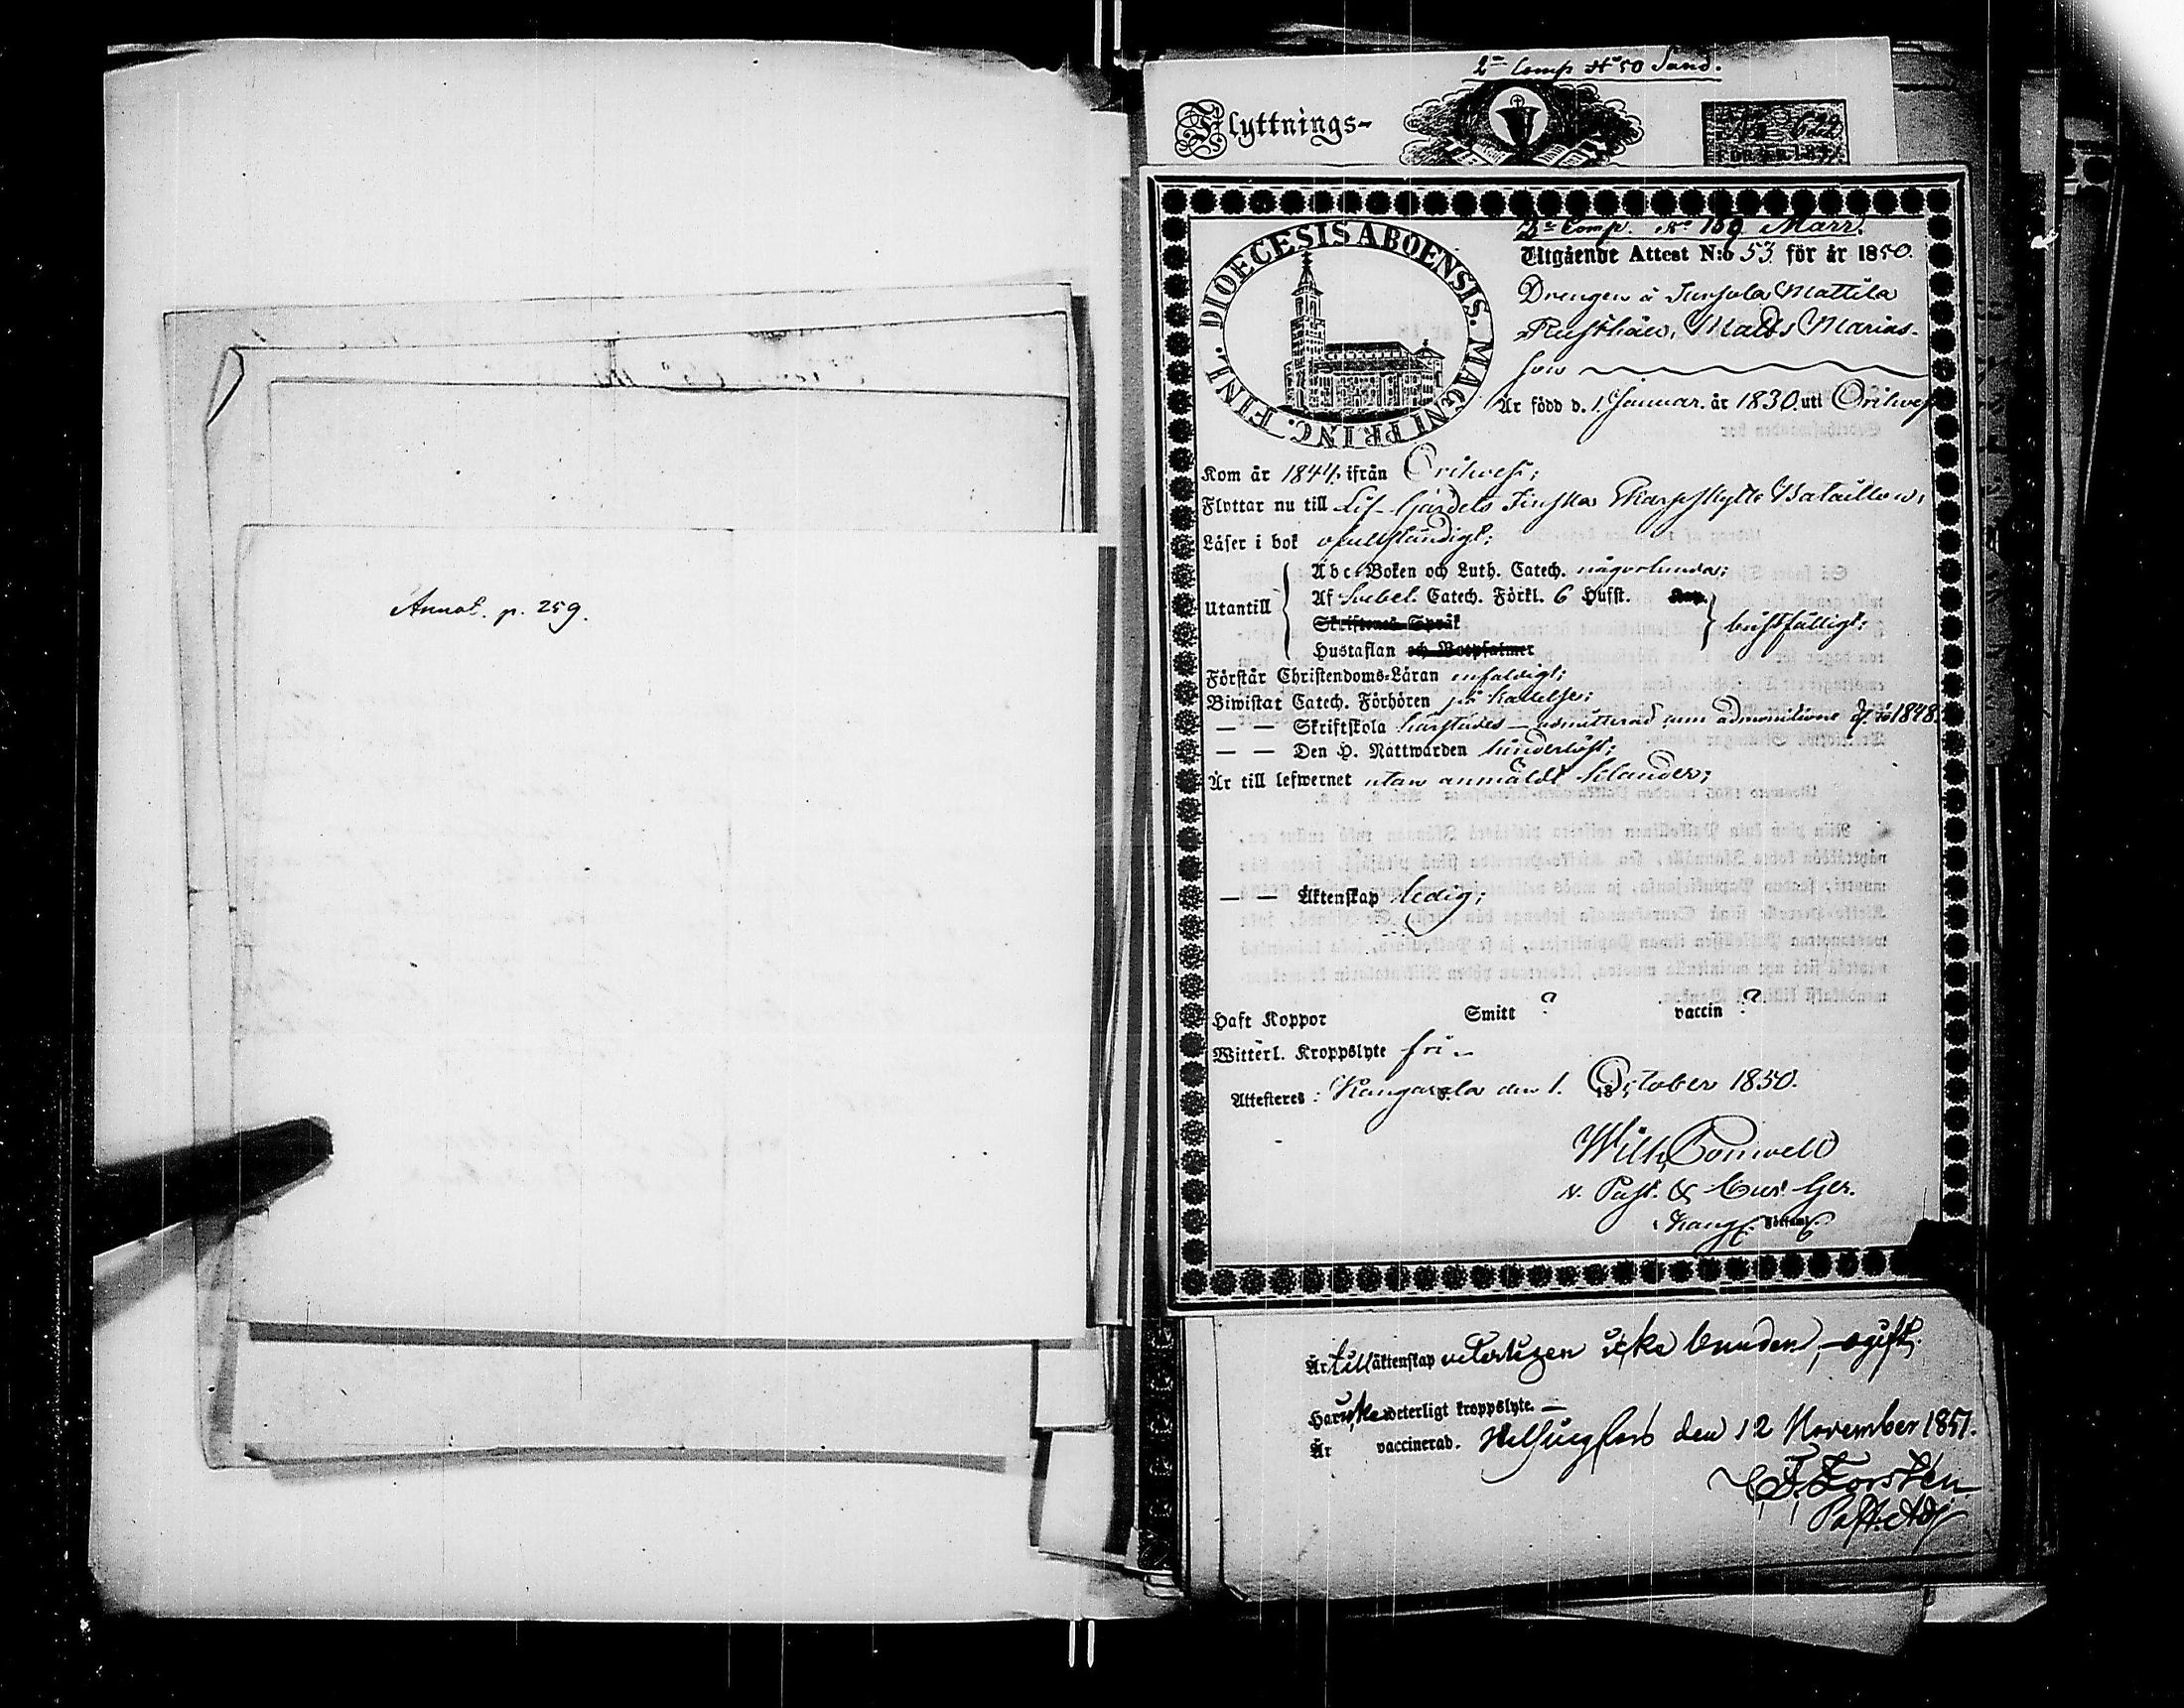 Annot. p. 259.
2:a Comp N:o 50 Sand.
Flyttnings-
622
FÖR ÅR 185
2:a Comp. N:o 159 Marr.
DIOECESIS ABOENSIS. MAGNI PRINC. FINL.
Utgående Attest N:o 53 för år 1850.
Drengen å Mattila
Rusthåll, Matts Marias-
son
Är född d. 1 Januar. år 1830. uti Orihvesi
Kom år 1844. ifrån Orihvesi;
Flyttar nu till Lif-Gardets Finska Skarpskytte Bataillon;
Läser i bok ofullständigt;
Utantill
Abc-Boken och Luth. Catech. någorlunda;
Af Svebel. Catech. Förkl. 6 Hufst. Kap.
Skriftenes Språk
bristfälligt;
Hustaflan och Botpsalmer
Förstår Christendoms-Läran enfaldigt;
Biwistat Catech. Förhören på kallelse;
— — Skriftskola härstädes — admitterad cum admonitione 1848.
— — Den H. Nattwarden hinderlöst;
Är till lefwernet utan anmäldt klander;
— — Äktenskap ledig;
Haft Koppor Smitt ? vaccin ?
Witterl. Kroppslyte fri.
Attesteras: Kangasala den 1. October 1850.
Wilh.
v. Past. &
Kang. Församl.
Är till äktenskap veterligen icke bunden, ogift.
Har icke veterligt kroppslyte. —
Är vaccinerad. Helsingfors den 12 November 1851.
F. Forstén
Past. Adj